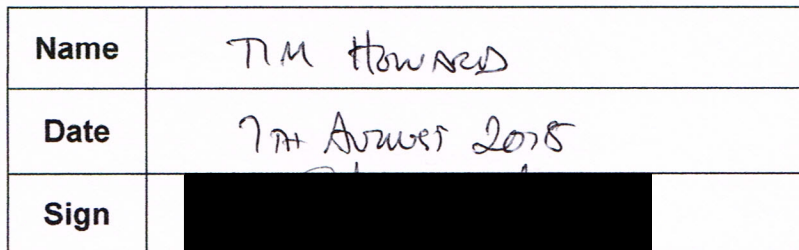 Name TIM HOWARD
Date 7TH AUGUST 2015
Sign